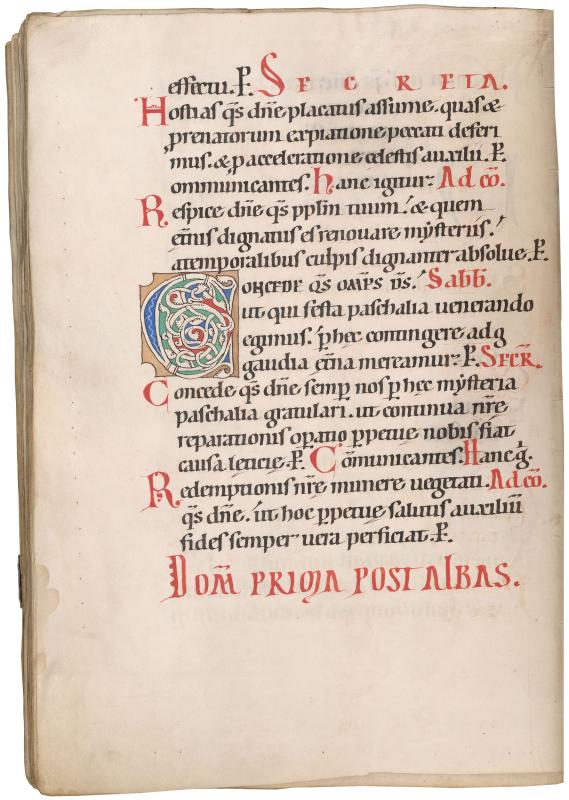 effectu. P. SECRETA.
Hostias q̄s dn̄e placatus assume. quas &
p renatorum expiatione peccati deferi
mus. & p acceleratione celestis auxilii. P.
ommunicantes. Hanc igitur Ad cō.
Respice dn̄e q̄s pplm̄ tuum. & quem
et̄nis dignatus es renouare mẏsteriis.
atemporalibus culpis dignanter absolue. P.
CONCEDE q̄s om̄ps ds̄. Sabb.
ut qui festa paschalia uenerando
egimus. p hec contingere ad g
gaudia et̄na mereamur. P. SECR̄.
Concede q̄s dn̄e semp nos p hec mẏsteria
paschalia gratulari. ut continua nr̄e
reparationis opatio ppetue nobis fiat
causa leticie. P. Cōmunicantes. Hanc g̃.
Redemptionis nr̄e munere uegetati. Ad cō.
q̄s dn̄e. ut hoc ppetue salutis auxiliū
fides semper uera perficiat. P.
DOM̄ PRIMA POST ALBAS.